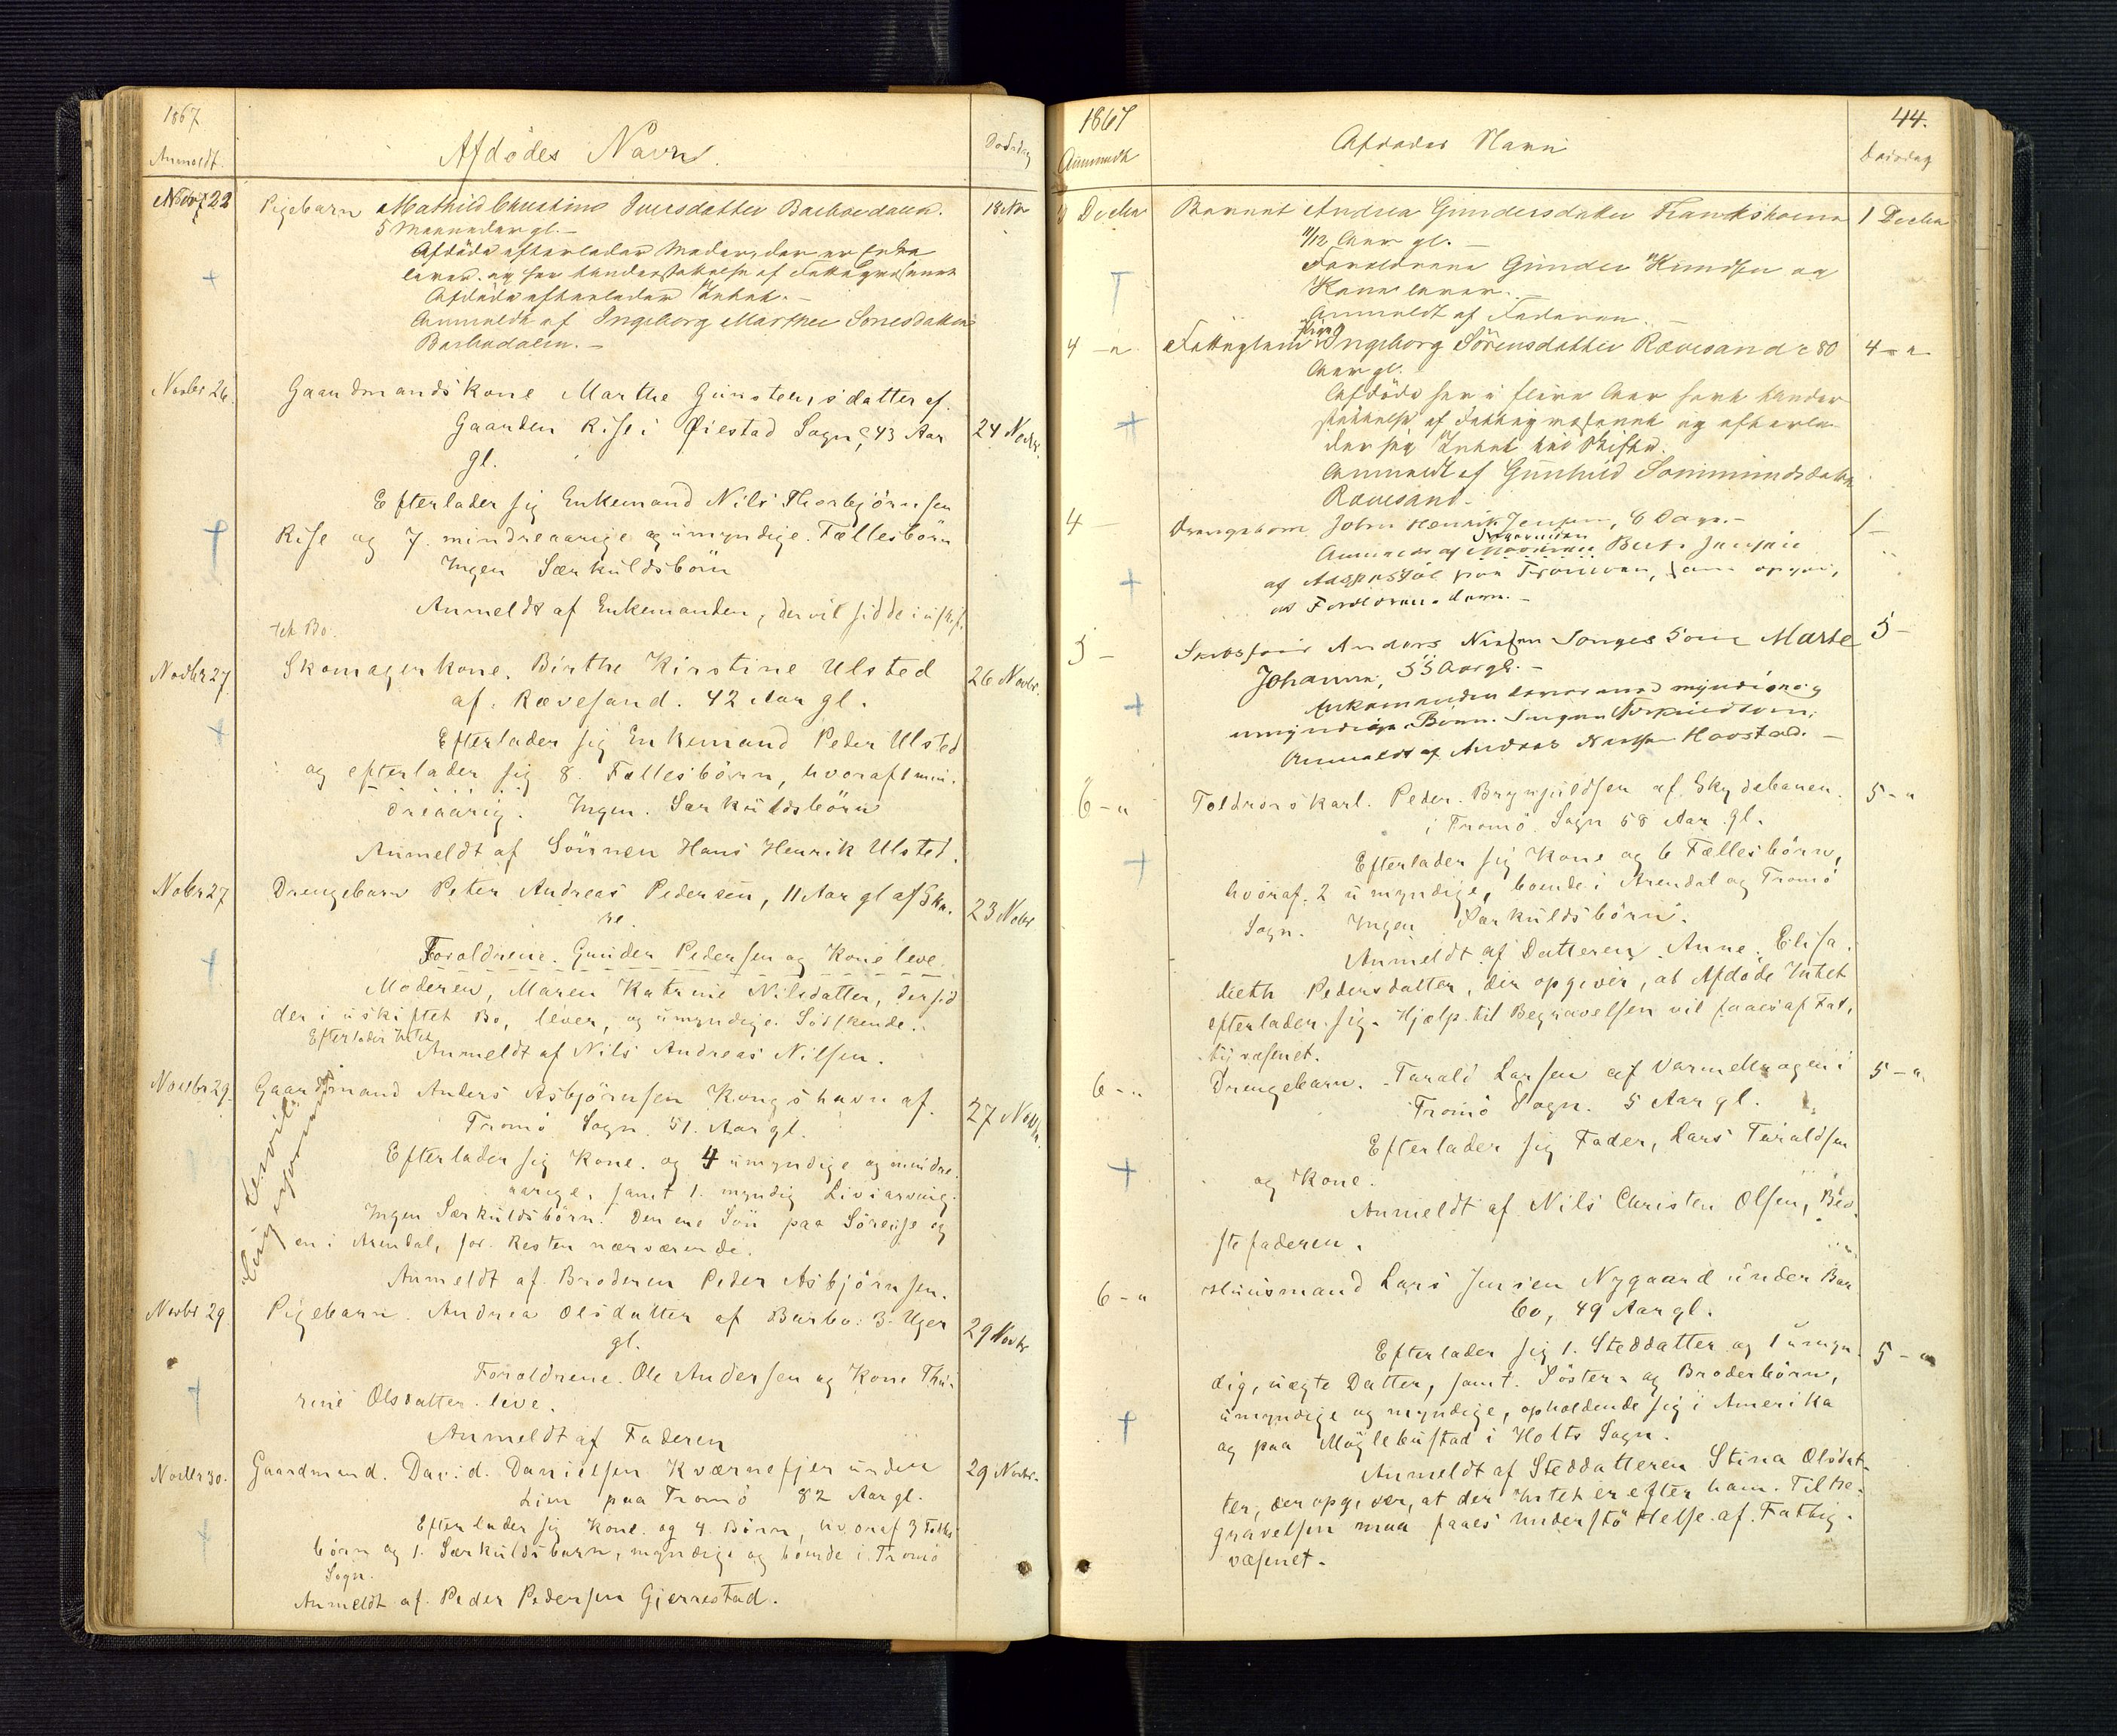 1867
Anmeldt.
Afdødes Navn.
Dødsdag
Novbr 22
Pigebarn Mathild Christine Iversdatter Barbodalen.
18 Nov
5 Maaneder gl. —
Afdøde efterlader Moder, der er Enke
lever og har Understøttelse af Fattigvæsenet
Afdøde efterlader Intet. —
Anmeldt af Ingeborg Marthea Jonesdatter
Barbodalen. —
Novbr 26.
Gaardmandskone Marthe Gunstensdatter af
Gaarden Rise i Øiestad Sogn, 43 Aar
24 Novbr.
gl.
Efterlader sig Enkemand Nils Thorbjörnsen
Rise og 7 mindreaarige og umyndige Fællesbörn
Ingen Særkuldsbörn
Anmeldt af Enkemanden, der vil sidde i uskif-
tet Bo.
Novbr 27
Skomagerkone Birthe Kirstine Ulsted
26 Novbr.
af Rævesand. 42 Aar gl.
Efterlader sig Enkemand Peder Ulsted
og efterlader sig 8 Fællesbörn, hvoraf 1 min-
dreaarig. Ingen Særkuldsbörn
Anmeldt af Sönnen Hans Henrik Ulsted.
Nobr 27
Drengebarn Peter Andreas Pedersen, 11 Aar gl af Ska-
re.
23 Nobr
Foroldrene Gunder Pedersen og Kone leve.
Moderen, Maren Katrine Nilsdatter, der sid
der i uskiftet Bo, lever, og umyndige Södskende.
Efterlader Intet
Anmeldt af Nils Andreas Nilsen.
Novbr 29.
Gaardmand Anders Asbjörnsen Kongshavn af
27 Novbr.
Tromö Sogn 51 Aar gl.
Efterlader sig Kone og 4 umyndige og mindre-
aarige, samt 1 myndig Livsarving.
Ingen Særkuldsbörn. Den ene Sön paa Söreise og
en i Arendal, for Resten nærværende.
Anmeldt af Broderen Peder Asbjörnsen.
Novbr 29.
Pigebarn Andrea Olsdatter af Barbo 3 Uger
29 Novbr
gl.
Foroldrene Ole Andersen og Kone Thu-
rine Olsdatter leve.
Anmeldt af Faderen
Novbr 30.
Gaardmand David Danielsen Kværnefjer under
29 Novbr.
Lien paa Tromö 82 Aar gl.
Efterlader sig Kone og 4 Börn, hvoraf 3 Fælles-
börn og 1 Særkuldsbarn, myndige og boende i Tromö
Sogn.
Anmeldt af Peder Pedersen Gjerrestad.
1867
44.
Anmeldt
Afdødes Navn
Dødsdag
3 Decbr
Barnet Andrea Gundersdatter
1 Decbr
11/12 Aar gl. —
Foreldrene Gunder Knudsen og
Kone lever. —
Anmeldt af Faderen. —
4 — "
Fattiglem Pige Ingeborg Sörensdatter Rævesand 80
4 — "
Aar gl.
Afdøde har i flere Aar havt Under
støttelse af Fattigvæsenet og efterla-
der sig Intet til Skifte.
Anmeldt af Gunhild
Rævesand.
4 —
Drengebarn John Henrik Jensen, 8 Dage. —
1 —
Anmeldt af
af paa Tromøen, som opgav,
at Forældrene leve. —
5 —
Anders Nielsen Songes Kone Marte
5 —
Johanne, 55 Aar gl. —
Enkemanden lever med myndige og
umyndige Börn. Ingen
Anmeldt af Anders Nielsen —
6 — "
Toldrorskarl Peder Brynjuldsen af Skydebanen
5 — "
i Tromö Sogn 58 Aar gl.
Efterlader sig Kone og 6 Fællesbörn,
hvoraf 2 umyndige, boende i Arendal og Tromö
Sogn. Ingen Særkuldsbörn.
Anmeldt af Datteren Anne Elisa-
beth Pedersdatter, der opgiver, at Afdöde Intet
efterlader sig. Hjælp til Begravelsen vil faaes af Fat-
tigvæsenet.
6 — "
Drengebarn Tarald Larsen af i
5 — "
Tromö Sogn. 5 Aar gl.
Efterlader sig Fader, Lars Taraldsen
og Kone.
Anmeldt af Nils Christen Olsen, Bed-
stefaderen.
6 — "
Huusmand Lars Jensen Nygaard under Bar
bo, 49 Aar gl.
Efterlader sig 1 Steddatter og 1 umyn-
5 — "
dig, uægte Datter, samt Söster- og Broderbörn,
umyndige og myndige, opholdende sig i Amerika
og paa Möglebustad i Holts Sogn.
Anmeldt af Steddatteren Stina Olsdat-
ter, der opgiver, at der Intet er efter ham. Til Be-
gravelsen maa faaes Understöttelse af Fattig-
væsenet.